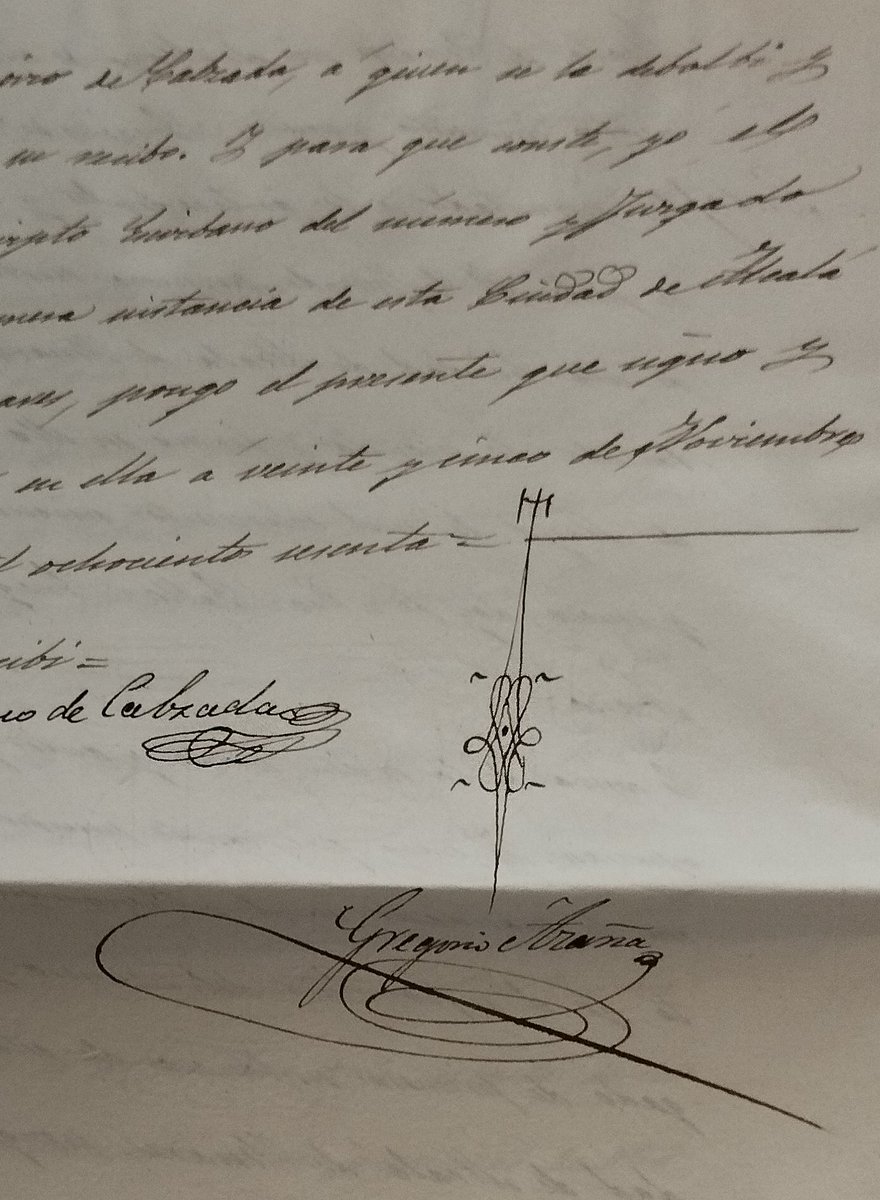 de Calzada, a quien se la debolbi y
su recibo. Y para que conste, yo el
Escribano del numero y Juzgado
mera instancia de esta Ciudad de Alcalá
ares, pongo el presente que signo y
en ella a veinte y cinco de Noviembre
ochocientos sesenta =
cibi =
de Calzada
Gregorio Azaña